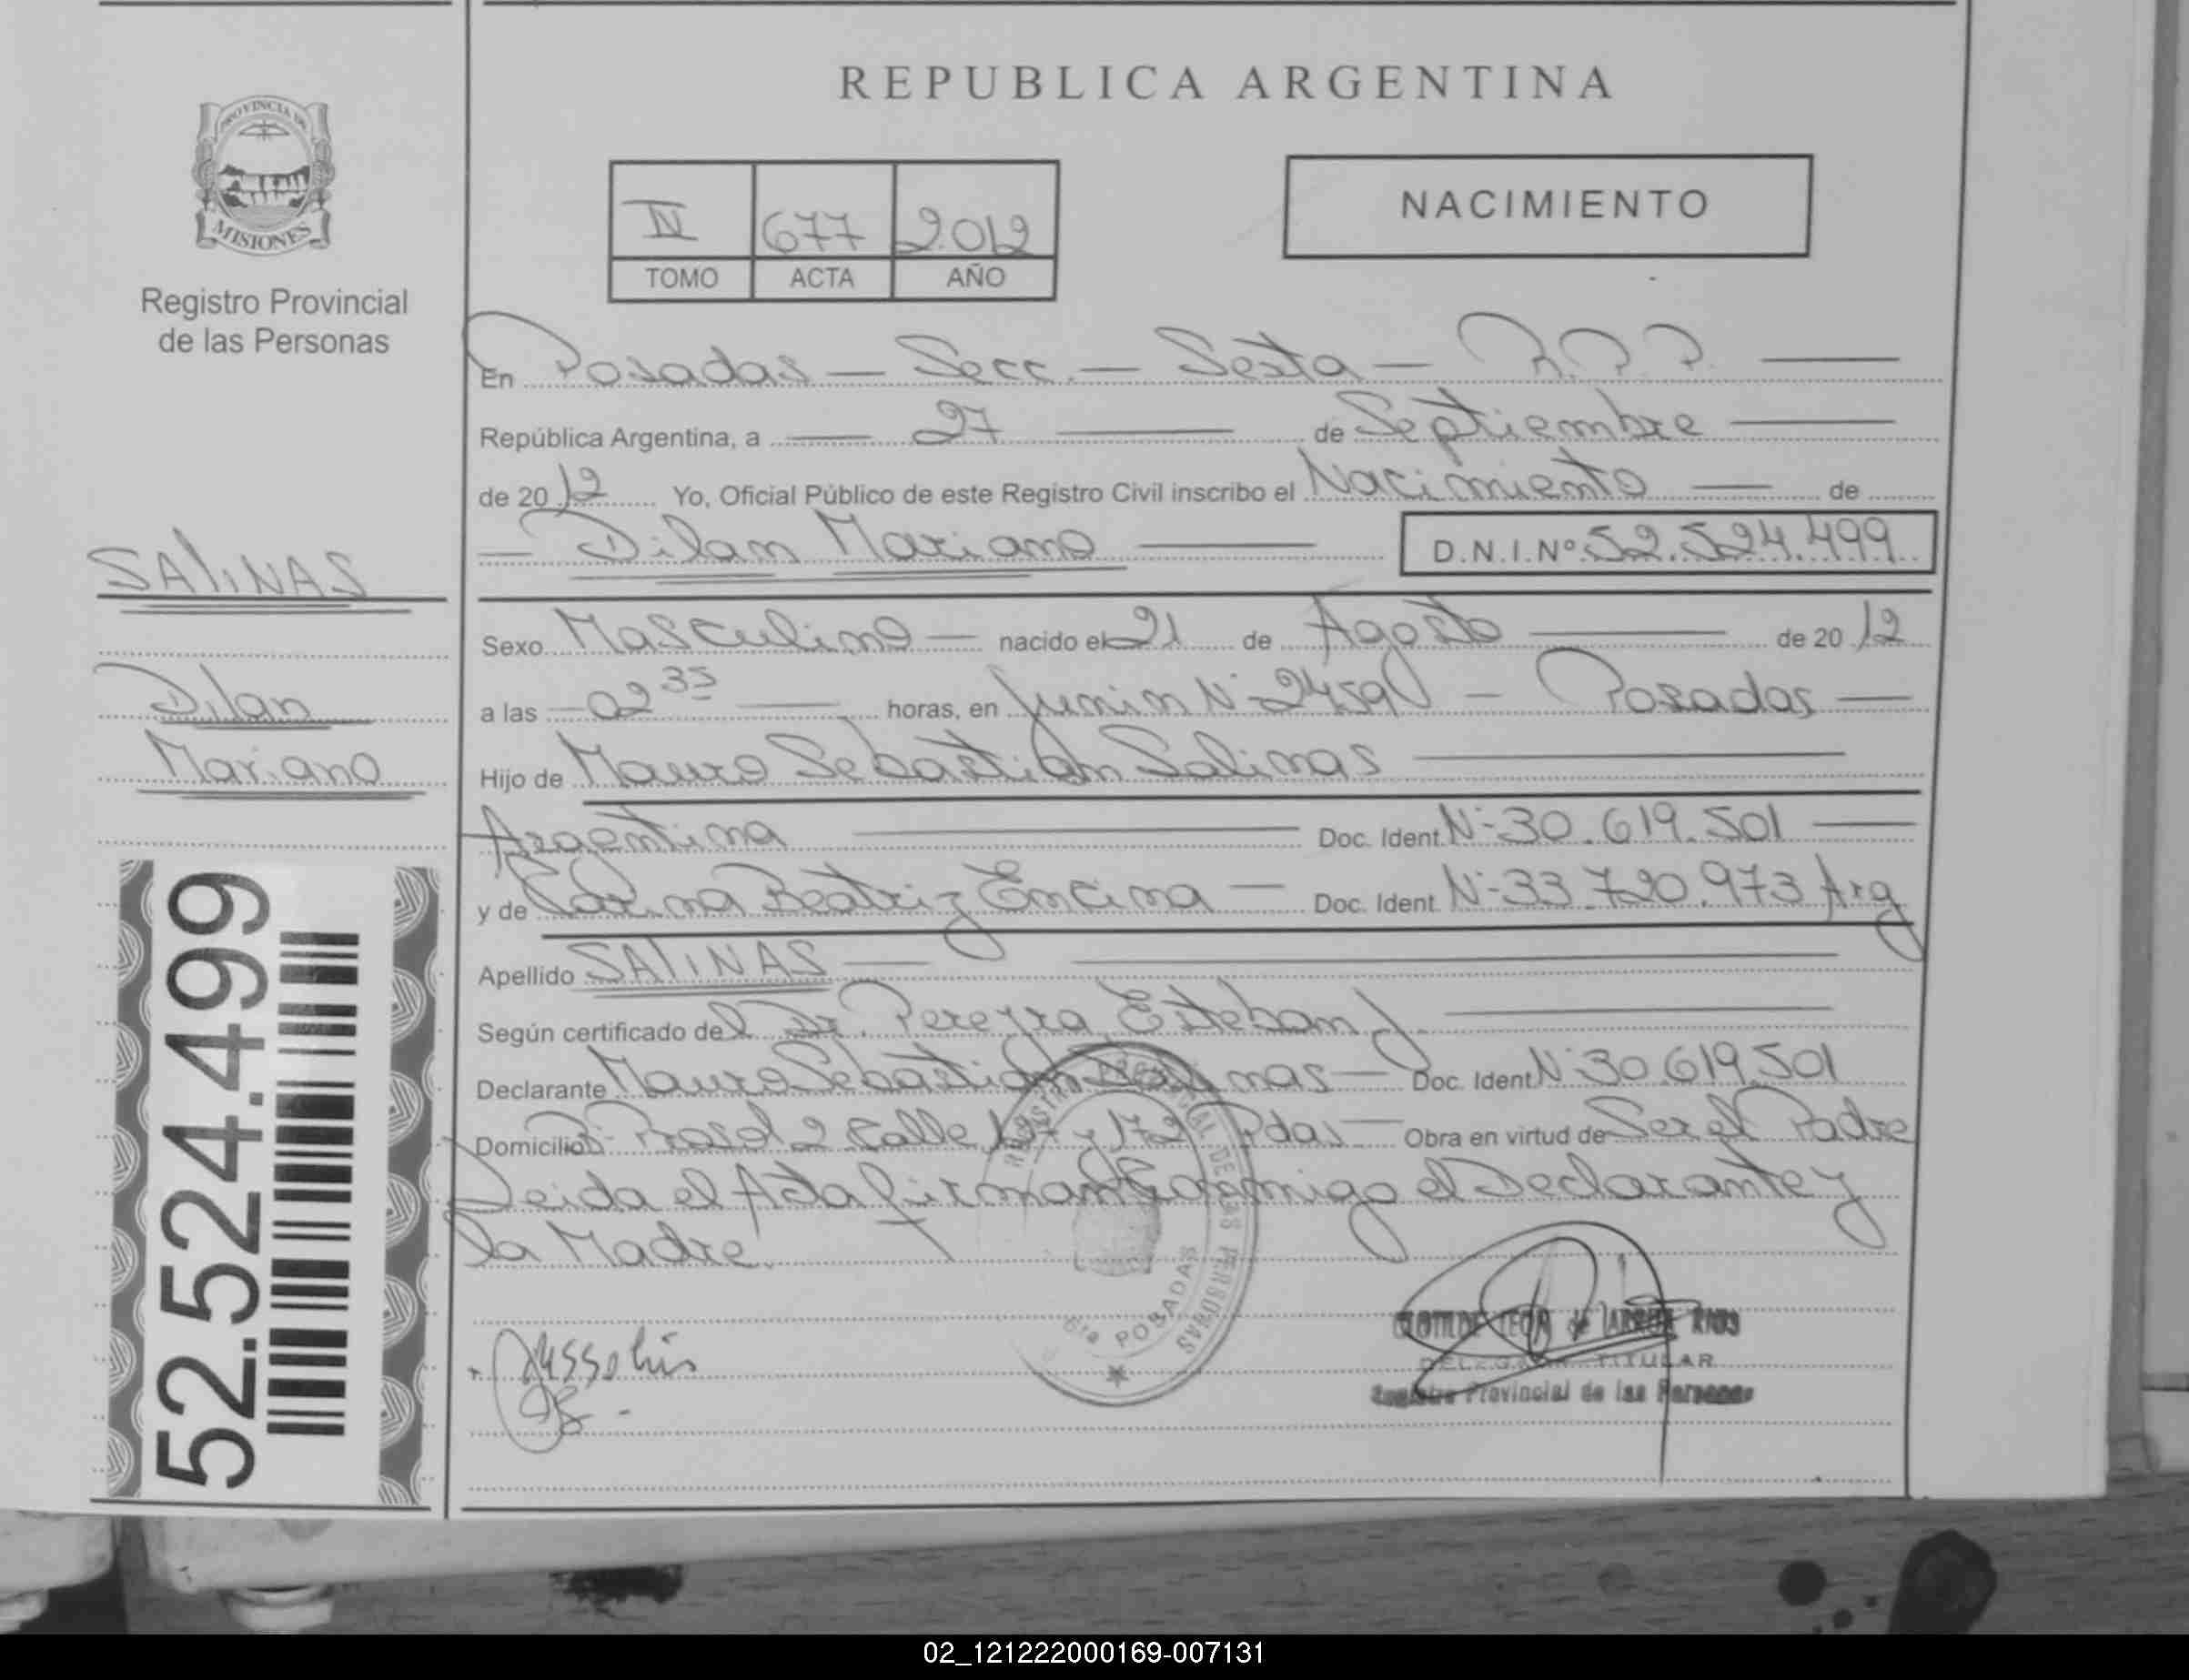 REPUBLICA ARGENTINA
PROVINCIA DE
MISIONES
Registro Provincial
de las Personas
IV 677 2.012
TOMO ACTA AÑO
NACIMIENTO
En Posadas — Secc. — Sexta — R.P.P. —
República Argentina, a — 27 — de Septiembre —
de 20 12 Yo, Oficial Público de este Registro Civil inscribo el Nacimiento — de
— Dilan Mariano — D.N.I.Nº 52.524.499
SALINAS
Dilan
Mariano
52.524.499
Sexo Masculino — nacido el 21 de Agosto — de 20 12
a las 02 35 — horas, en Junin Nº 2459 — Posadas —
Hijo de Mauro Sebastian Salinas —
Argentina — Doc. Ident. Nº 30.619.501 —
y de Carina Beatriz Encina — Doc. Ident. Nº 33.720.973 Arg
Apellido SALINAS —
Según certificado del Dr. Pereyra Esteban J. —
Declarante Mauro Sebastian Salinas — Doc. Ident. Nº 30.619.501
Domicilio 2 Calle y 172 Pdas — Obra en virtud de Ser el Padre
Leida el Acta firman conmigo el Declarante y
la Madre.
REGISTRO PROVINCIAL DE LAS PERSONAS
6ta POSADAS
CLOTILDE de RIOS
DELEGADA TITULAR
Registro Provincial de las Personas
02_121222000169-007131